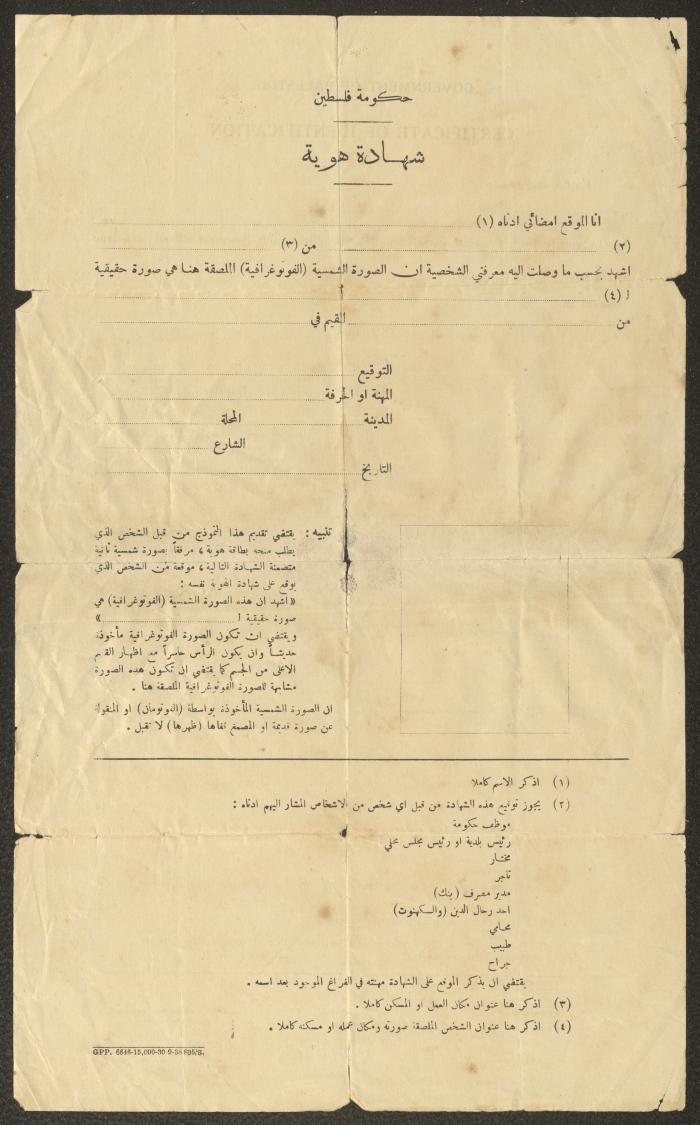 حكومة فلسطين
شهادة هوية
انا الموقع امضائي ادناه (١)
(٢) من (٣)
اشهد بحسب ما وصلت اليه معرفتي الشخصية ان الصورة الشمسية (الفوتوغرافية) الملصقة هنا هي صورة حقيقية
لـ (٤)
من المقيم في
التوقيع
المهنة او الحرفة
المدينة المحلة
الشارع
التاريخ
تنبيه : يقتضي تقديم هذا النموذج من قبل الشخص الذي
يطلب منحه بطاقة هوية، مرفقاً بصورة شمسية ثانية
متضمنة الشهادة التالية، موقعة من الشخص الذي
يوقع على شهادة الهوية نفسه :
« اشهد ان هذه الصورة الشمسية (الفوتوغرافية) هي
صورة حقيقية لـ »
ويقتضي ان تكون الصورة الفوتوغرافية مأخوذة
حديثاً وان يكون الرأس حاسراً مع اظهار القسم
الاعلى من الجسم كما يقتضي ان تكون هذه الصورة
مشابهة للصورة الفوتوغرافية الملصقة هنا .
ان الصورة الشمسية المأخوذة بواسطة (الفوتومان) او المنقولة
عن صورة قديمة او المصمغ قفاها (ظهرها) لا تقبل .
(١) اذكر الاسم كاملا
(٢) يجوز توقيع هذه الشهادة من قبل اي شخص من الاشخاص المشار اليهم ادناه :
موظف حكومة
رئيس بلدية او رئيس مجلس محلي
مختار
تاجر
مدير مصرف (بنك)
احد رجال الدين (والكهنوت)
محامي
طبيب
جراح
يقتضي ان يذكر الموقع على الشهادة مهنته في الفراغ الموجود بعد اسمه .
(٣) اذكر هنا عنوان مكان العمل او المسكن كاملا .
(٤) اذكر هنا عنوان الشخص الملصقة صورته ومكان عمله او مسكنه كاملا .
GPP. 6646-15,000-30-9-38 895/S.